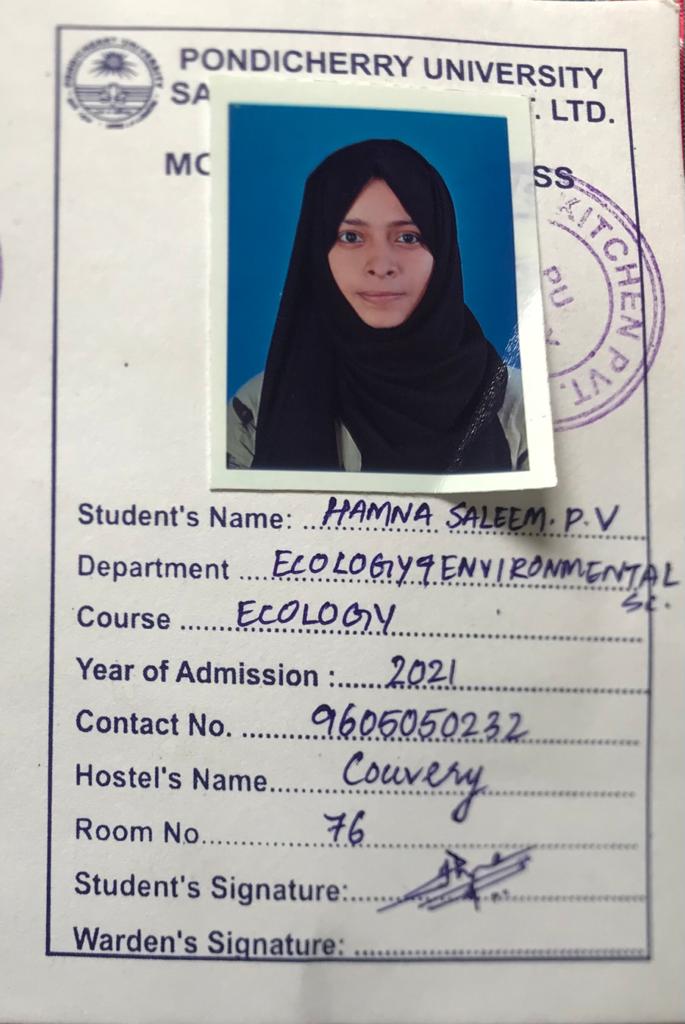 PONDICHERRY UNIVERSITY
SA . LTD.
MO SS
KITCHEN PVT.
PU
Student's Name: ...HAMNA SALEEM. P. V
Department ....ECOLOGY & ENVIRONMENTAL
SC.
Course .......ECOLOGY
Year of Admission :......2021
Contact No. .........9605050232
Hostel's Name........Couvery
Room No................76
Student's Signature:......
Warden's Signature: ......